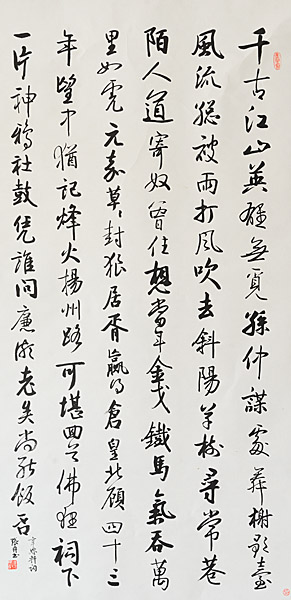 千古江山英雄無覓孫仲謀處舞榭歌臺
風流總被雨打風吹去斜陽草樹尋常巷
陌人道寄奴曾住想當年金戈鐵馬氣吞萬
里如虎元嘉草々封狼居胥贏得倉皇北顧四十三
年望中猶記烽火揚州路可堪回首佛狸祠下
一片神鴉社鼓凭誰問廉頗老矣尚能飯否
辛棄疾詞